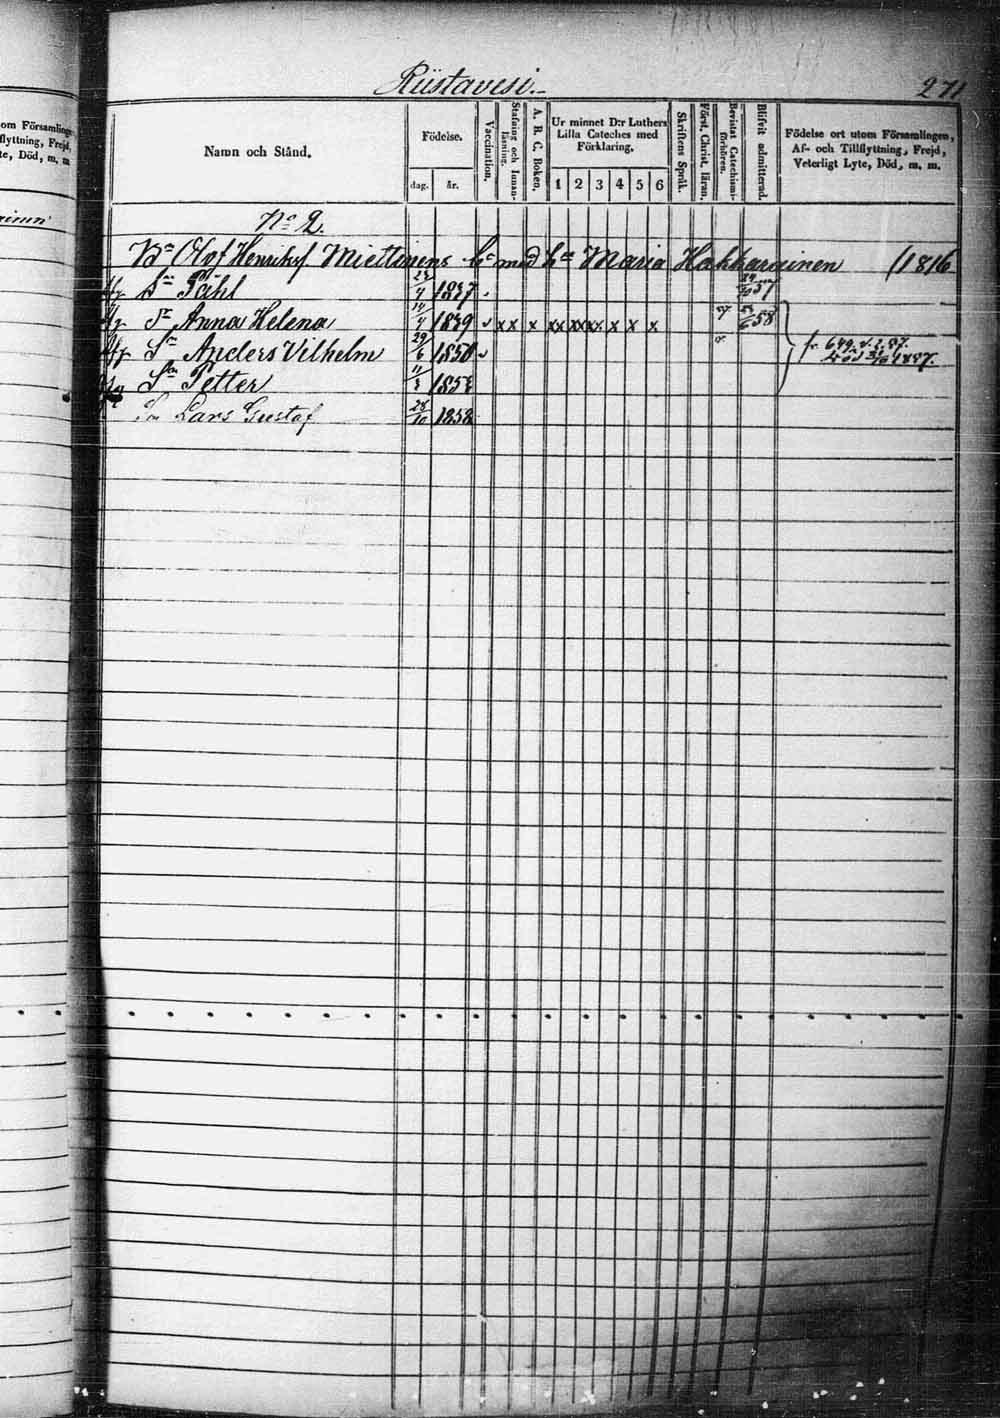 Riistavesi.
271
om Församlingen,
flyttning, Frejd,
te, Död, m. m.
Namn och Stånd.
Födelse.
dag. år.
Vaccination.
Stafning och Innan-
läsning.
A. B. C. Boken.
Ur minnet D:r Luthers
Lilla Cateches med
Förklaring.
1 2 3 4 5 6
Skriftens Språk.
Först. Christ. läran.
Bevistat Catechismi-
förhören.
Blifvit admitterad.
Födelse ort utom Församlingen,
Af- och Tillflyttning, Frejd,
Veterligt Lyte, Död, m. m.
No 2.
Bn Olof Henriks. Miettinens h. med h. Maria Hakkarainen (1816
Sn Påhl 4 1837 57
Dr Anna Helena 4 1839 v xx x xx xx xx x x x 58
Sn Anders Vilhelm 29/6 1850 v fr. 649. d. 2. 87.
Sn Petter 11 185 död 1887.
Sn Lars Gustaf 28/10 1858